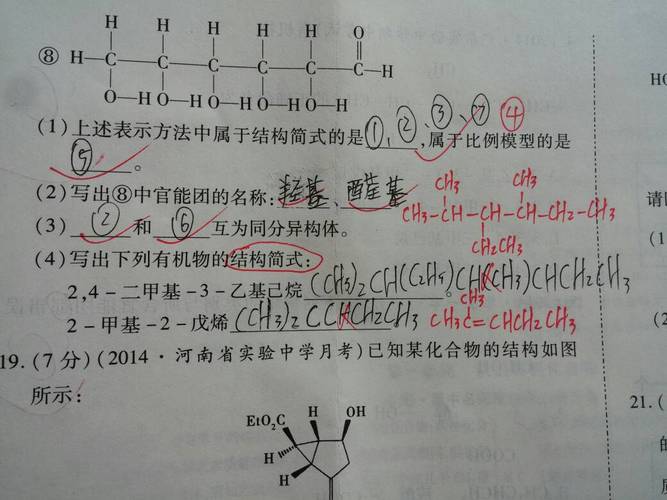 H H H H H O
⑧ H—C—C—C—C—C—C—H
O—H O—H O—H O—H O—H
(1)上述表示方法中属于结构简式的是①、②、③、⑦ ④,属于比例模型的是
⑤。
(2)写出⑧中官能团的名称:羟基、醛基
CH3 CH3
CH3-CH-CH-CH-CH2-CH3
CH2CH3
(3)②和⑥互为同分异构体。
(4)写出下列有机物的结构简式:
2,4-二甲基-3-乙基己烷(CH3)2CH(C2H5)CH(CH3)CHCH2CH3。
CH3
2-甲基-2-戊烯(CH3)2CCHCH2CH3 CH3C=CHCH2CH3
19.(7分)(2014·河南省实验中学月考)已知某化合物的结构如图
所示:
EtO2C H OH
H
H
HO
请
(1
(2
21.(
的